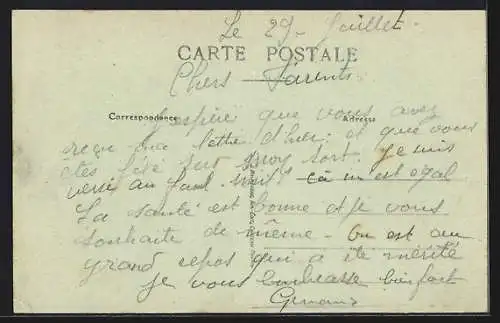 Le 29 Juillet.
CARTE POSTALE
Chers Parents
Correspondance
Adresse
J'espère que vous avez
reçu ma lettre d'hier et que vous
êtes fixé sur mon sort. Je suis
versé au ça m'est égal
La santé est bonne et je vous
souhaite de même - On est au
grand repos qui a été mérité
Je vous embrasse bien fort